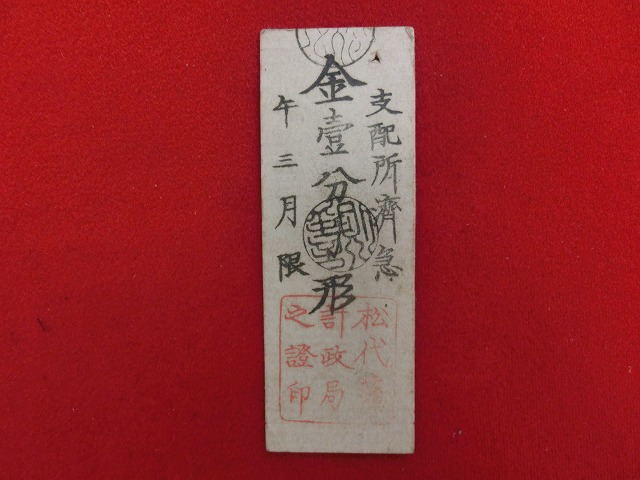 支配所濟急
金壹分
形
午三月限
松代藩
計政局
之證印